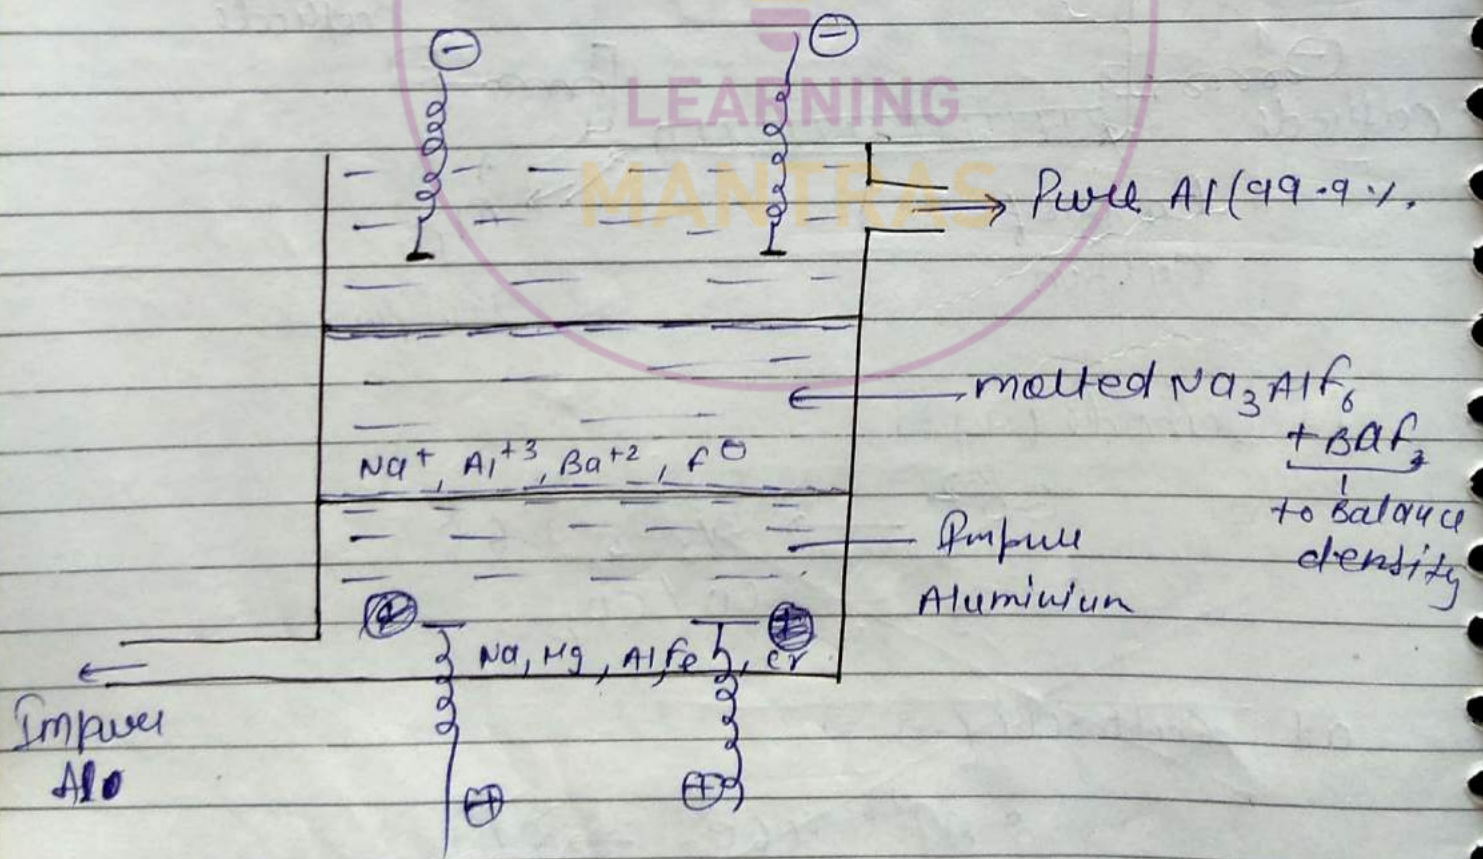 ⊖ ⊖
LEARNING
MANTRAS
Pure Al (99.9%.
molted Na₃AlF₆
+ BaF₂
to Balance
density
Na⁺, Al⁺³, Ba⁺², F⊖
Impure
Aluminium
⊕ ⊕
Na, Mg, Al, Fe, Cr
Impure
Al
⊕ ⊕